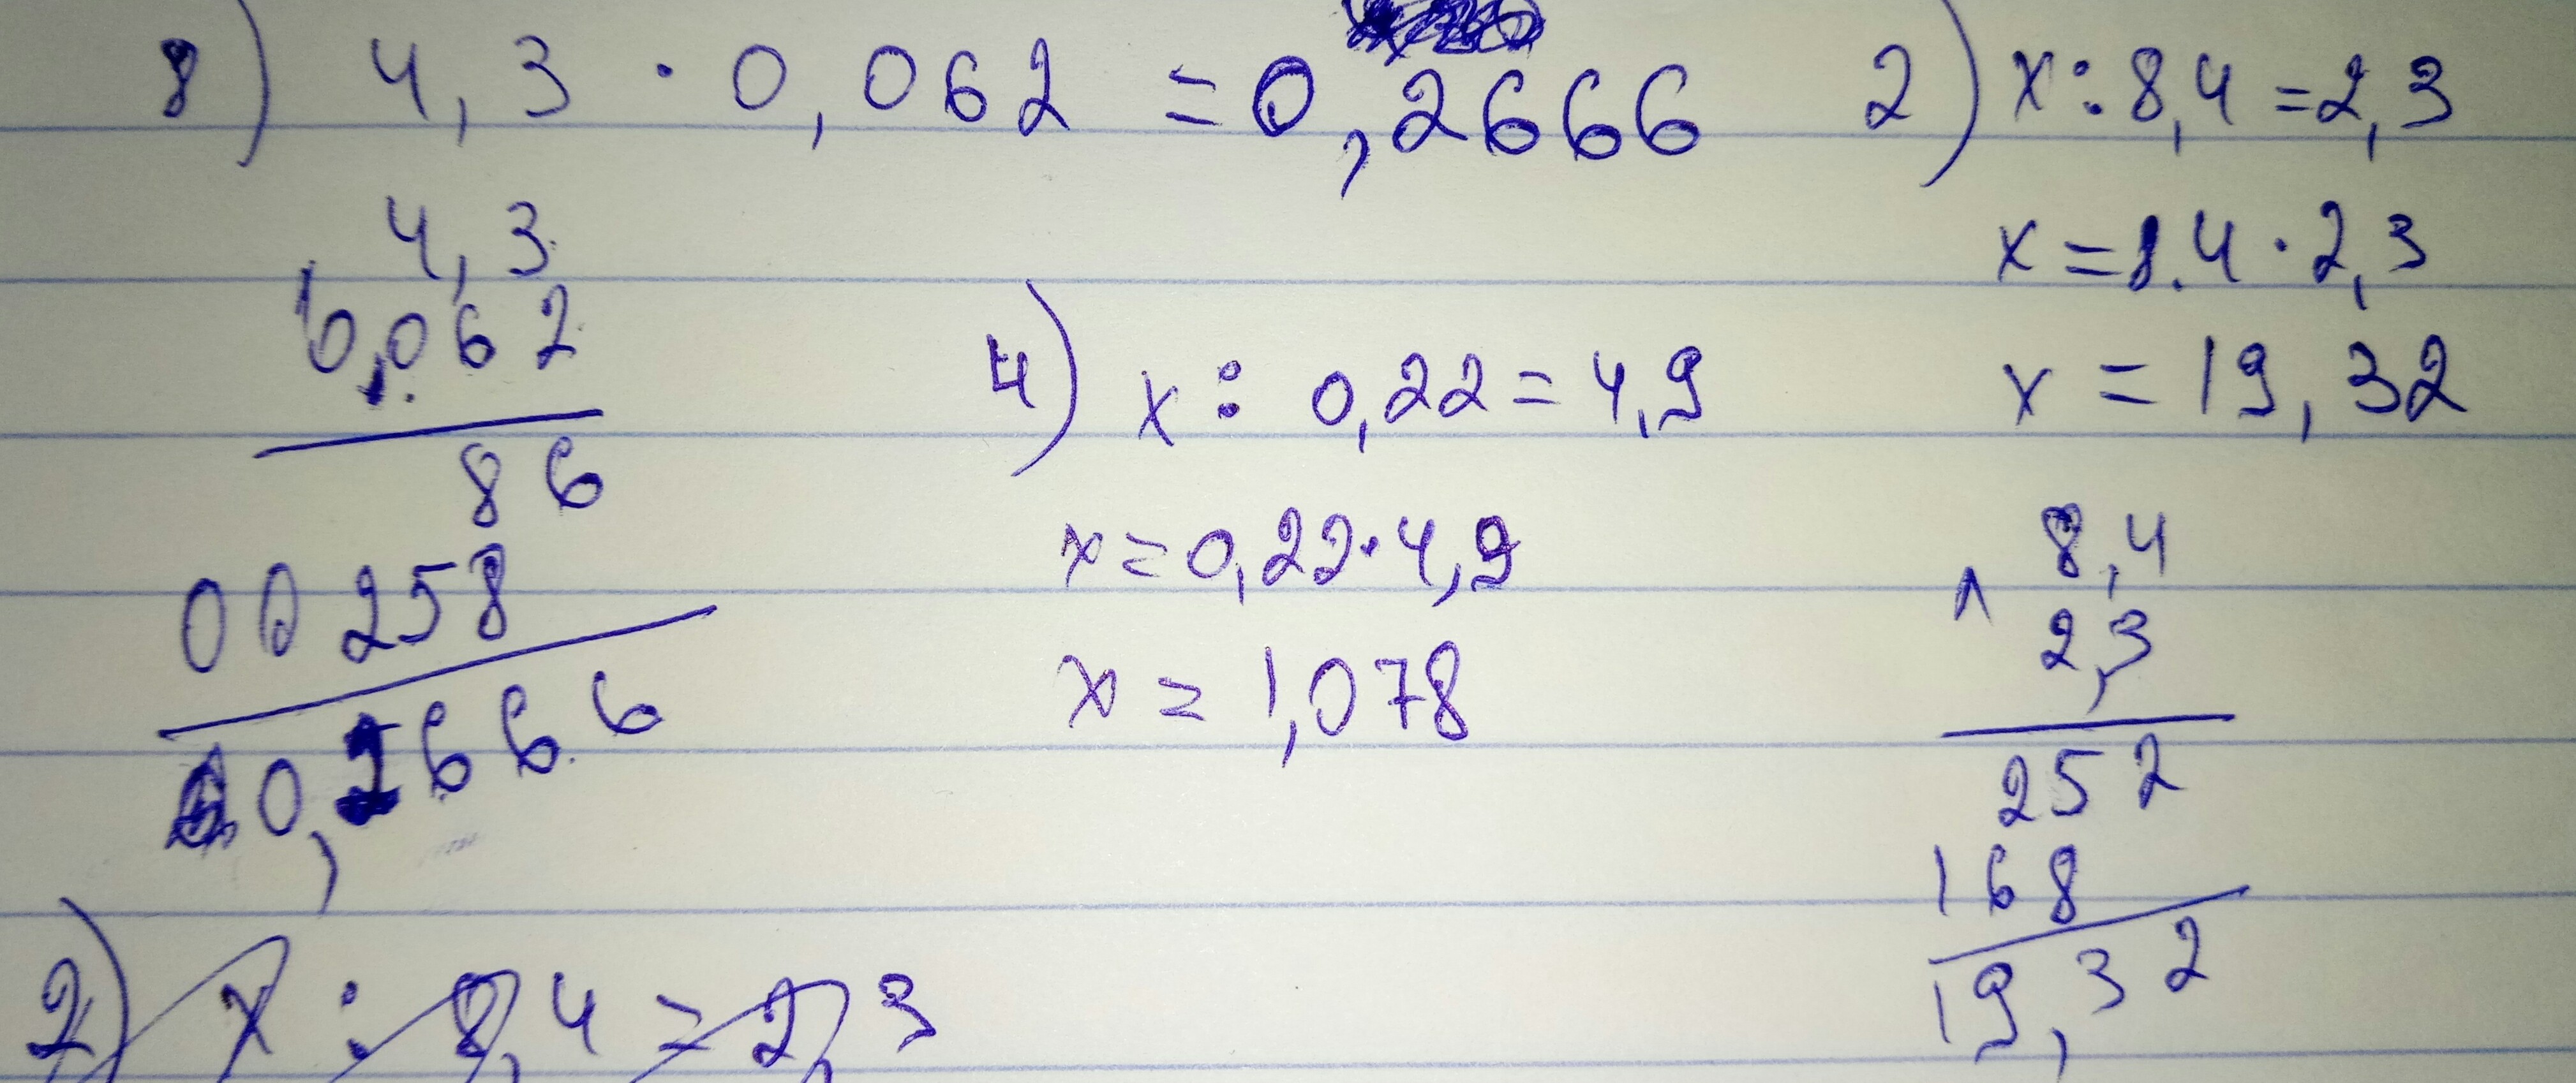 8) 4,3 · 0,062 = 0,2666
4,3
0,062
86
00258
0,2666
4) x : 0,22 = 4,9
x = 0,22 · 4,9
x = 1,078
2) x : 8,4 = 2,3
x = 8.4 · 2,3
x = 19,32
8,4
2,3
252
168
19,32
2) x : 8,4 = 2,3